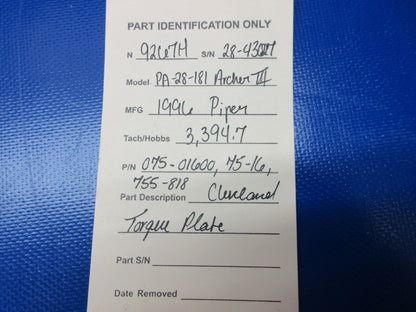 PART IDENTIFICATION ONLY
N 9267H S/N 28-43027
Model PA-28-181 Archer III
MFG 1996 Piper
Tach/Hobbs 3,394.7
P/N 075-01600, 75-16,
755-818
Part Description Cleveland
Torque Plate
Part S/N
Date Removed